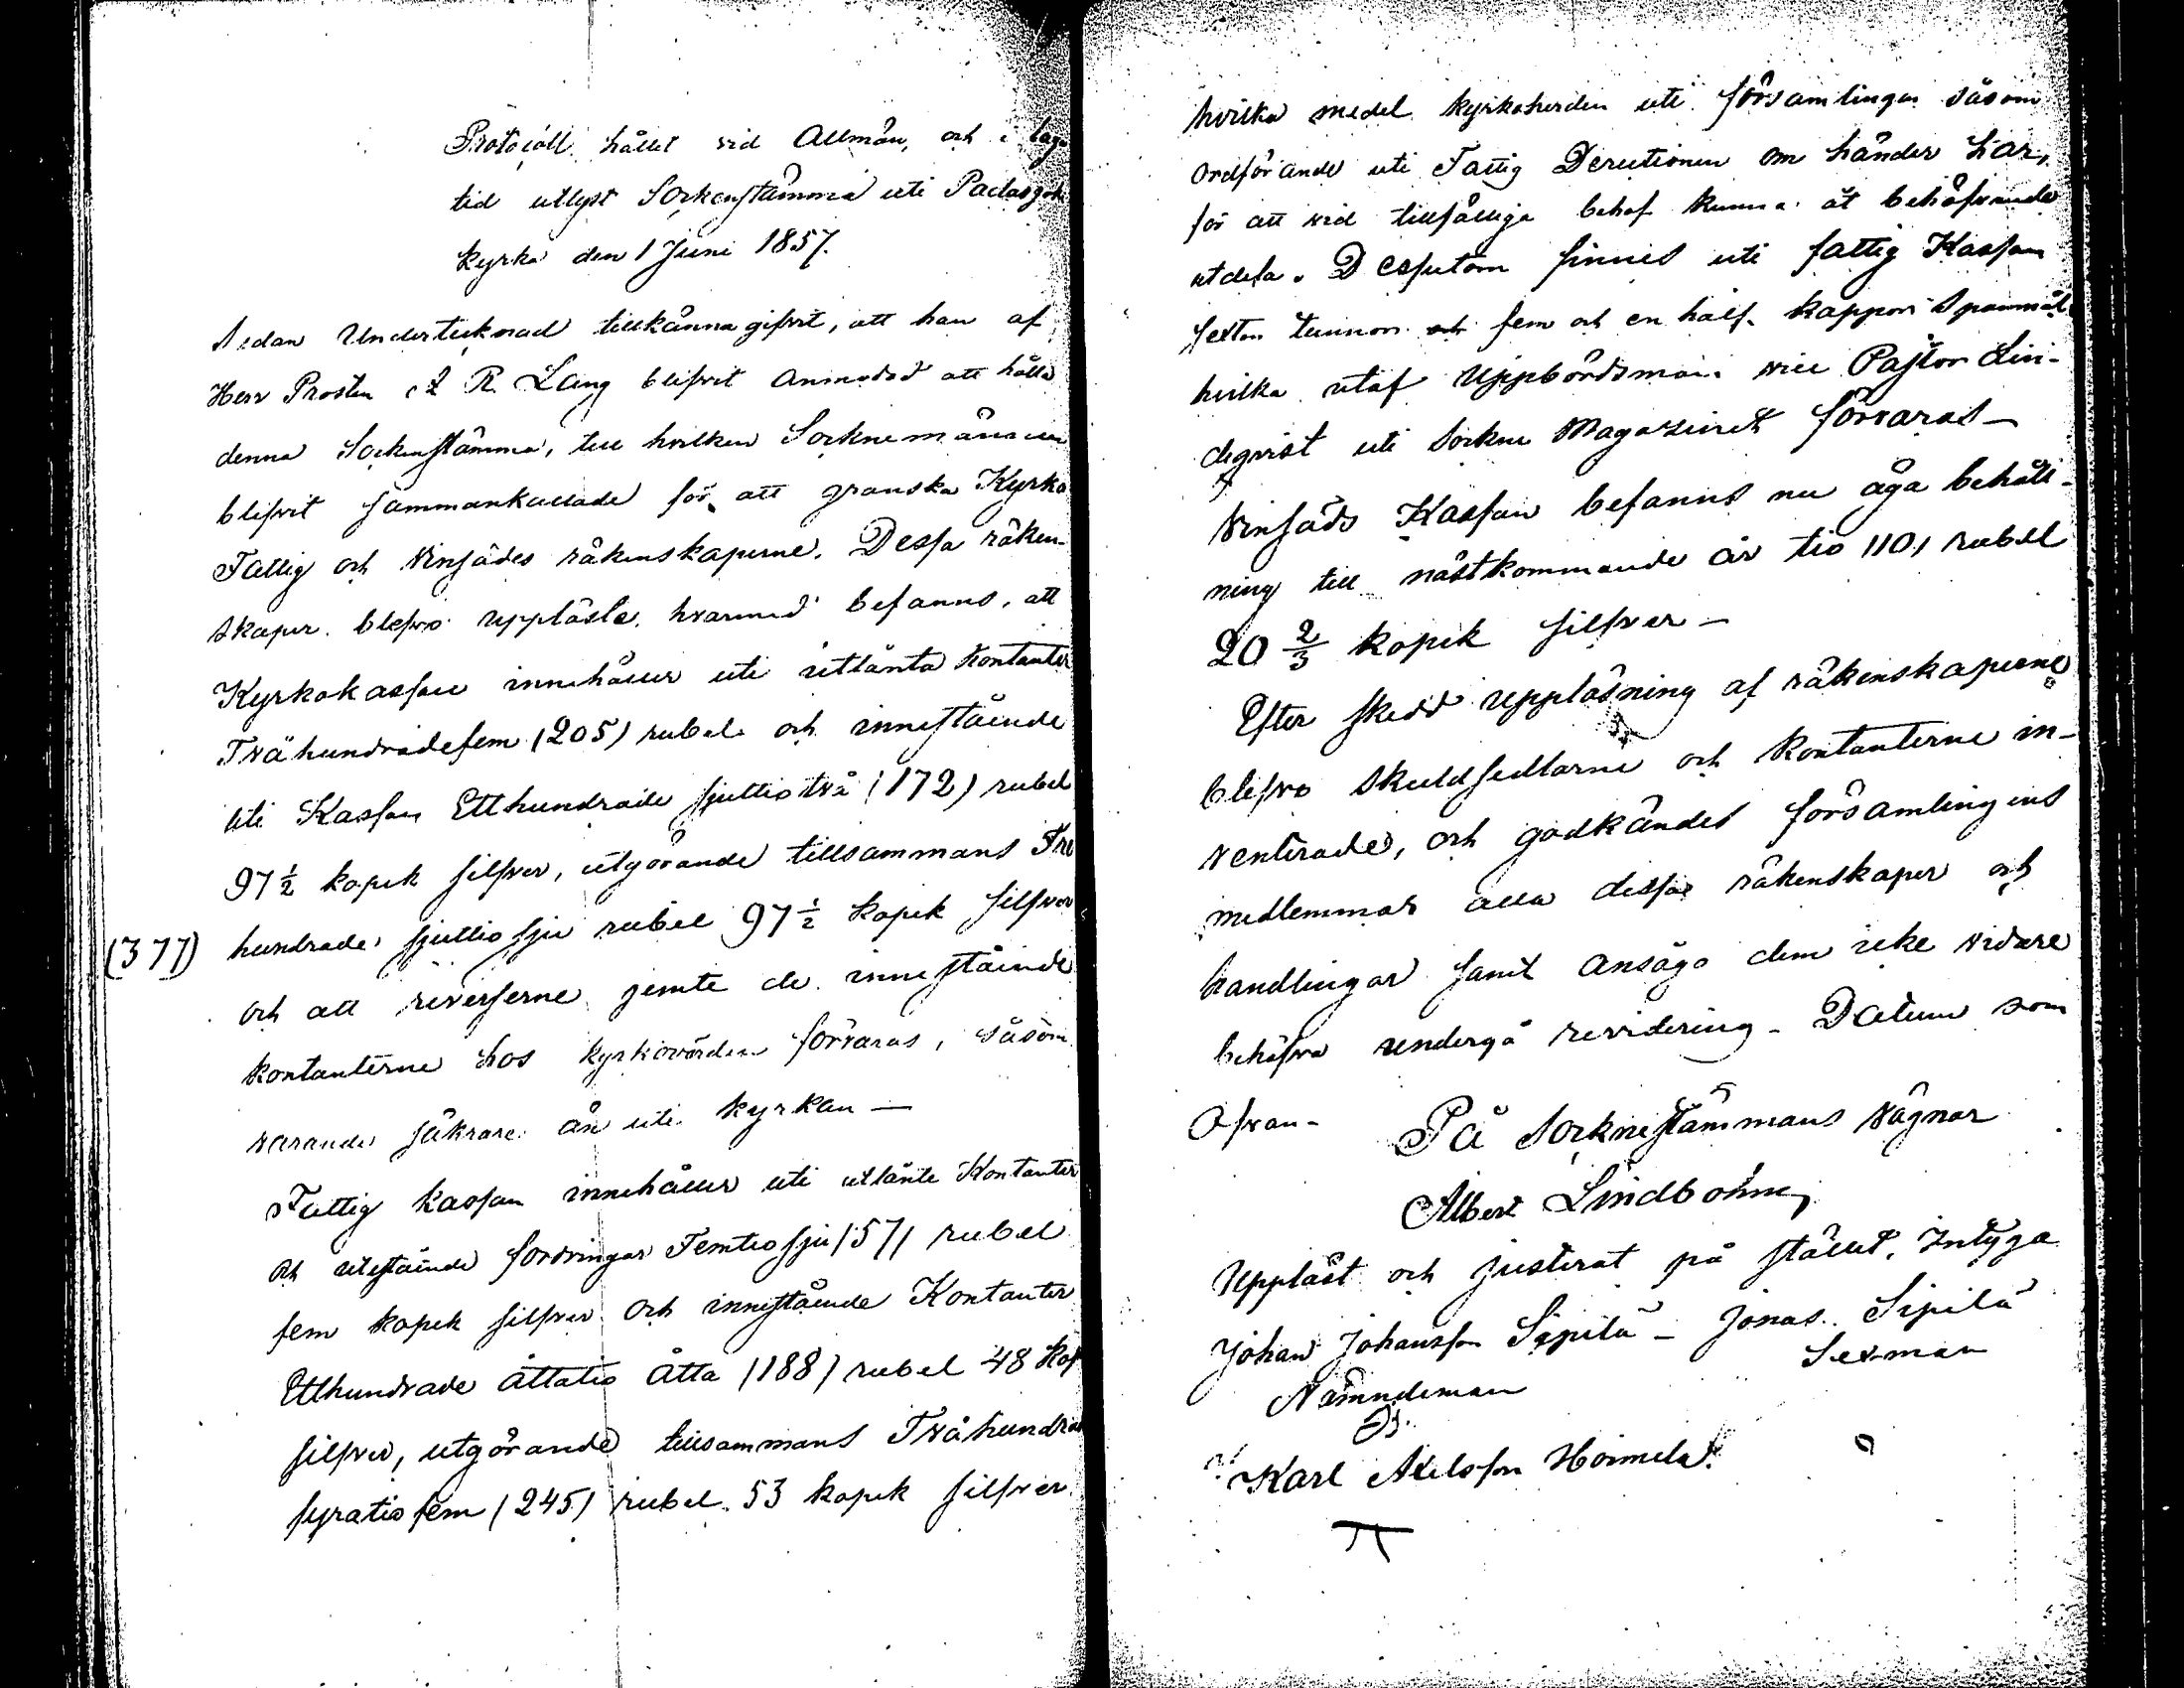 Protocoll hållet vid Allmän, och i laga
tid utlyst Sockenstämma uti Padasjoki
kyrka den 1 Juni 1857.
Sedan Undertecknad tillkännagifvit, att han af
Herr Prosten R. Lang blifvit anmodad att hålla
denna Sockenstämma, till hvilken Socknemännen
blifvit sammankallade för att granska Kyrko
Fattig och Vinsädes räkenskaperne. Dessa räken-
skaper blefvo uppläste, hvarmed befanns, att
Kyrkokassan innehåller uti utlänta Kontanter
Tvåhundradefem (205) rubel och innestående
uti Kassan Etthundrade sjuttiotvå (172) rubel
97 ½ kopek silfver, utgörande tillsammans Tre
(377) hundrade sjuttiosju rubel 97 ½ kopek silfver
och att reverserne jemte de innestående
kontanterne hos kyrkovärden förvaras, såsom
varande säkrare än uti kyrkan —
Fattig kassan innehåller uti utlänte Kontanter
och utestående fordringar Femtiosju (57) rubel
fem kopek silfver och innestående Kontanter
Etthundrade åttatio åtta (188) rubel 48 Kop
silfver, utgörande tillsammans Tvåhundra
fyratiofem (245) rubel 53 kopek silfver
hvilka medel kyrkoherden uti församlingen såsom
Ordförande uti Fattig Direktionen om händer har,
för att vid tillfälliga behof kunna åt behöfvande
utdela. Dessutom finnes uti fattig Kassan
sexton tunnor och fem och en half kappor Spannmål
hvilka utaf Uppbördsman vice Pastor Lin-
deqvist uti Sockne Magazinet förvaras —
Vinsäds Kassan befanns nu äga behåll-
ning till nästkommande år tio (10) rubel
20 ⅔ kopek silfver —
Efter skedd uppläsning af räkenskaperne
blefvo skuldsedlarne och kontanterne in-
venterade, och godkändes församlingens
medlemmar alla dessa räkenskaper och
handlingar samt ansågo dem icke vidare
behöfva undergå revidering. Datum som
Ofvan-
På Socknestämmans vägnar
Albert Lindbohm
Uppläst och justerat på stället, Intyga
Johan Johansson Sipilä — Jonas Sipilä
Nämndeman Sexman
Karl Axelsson Hoimela